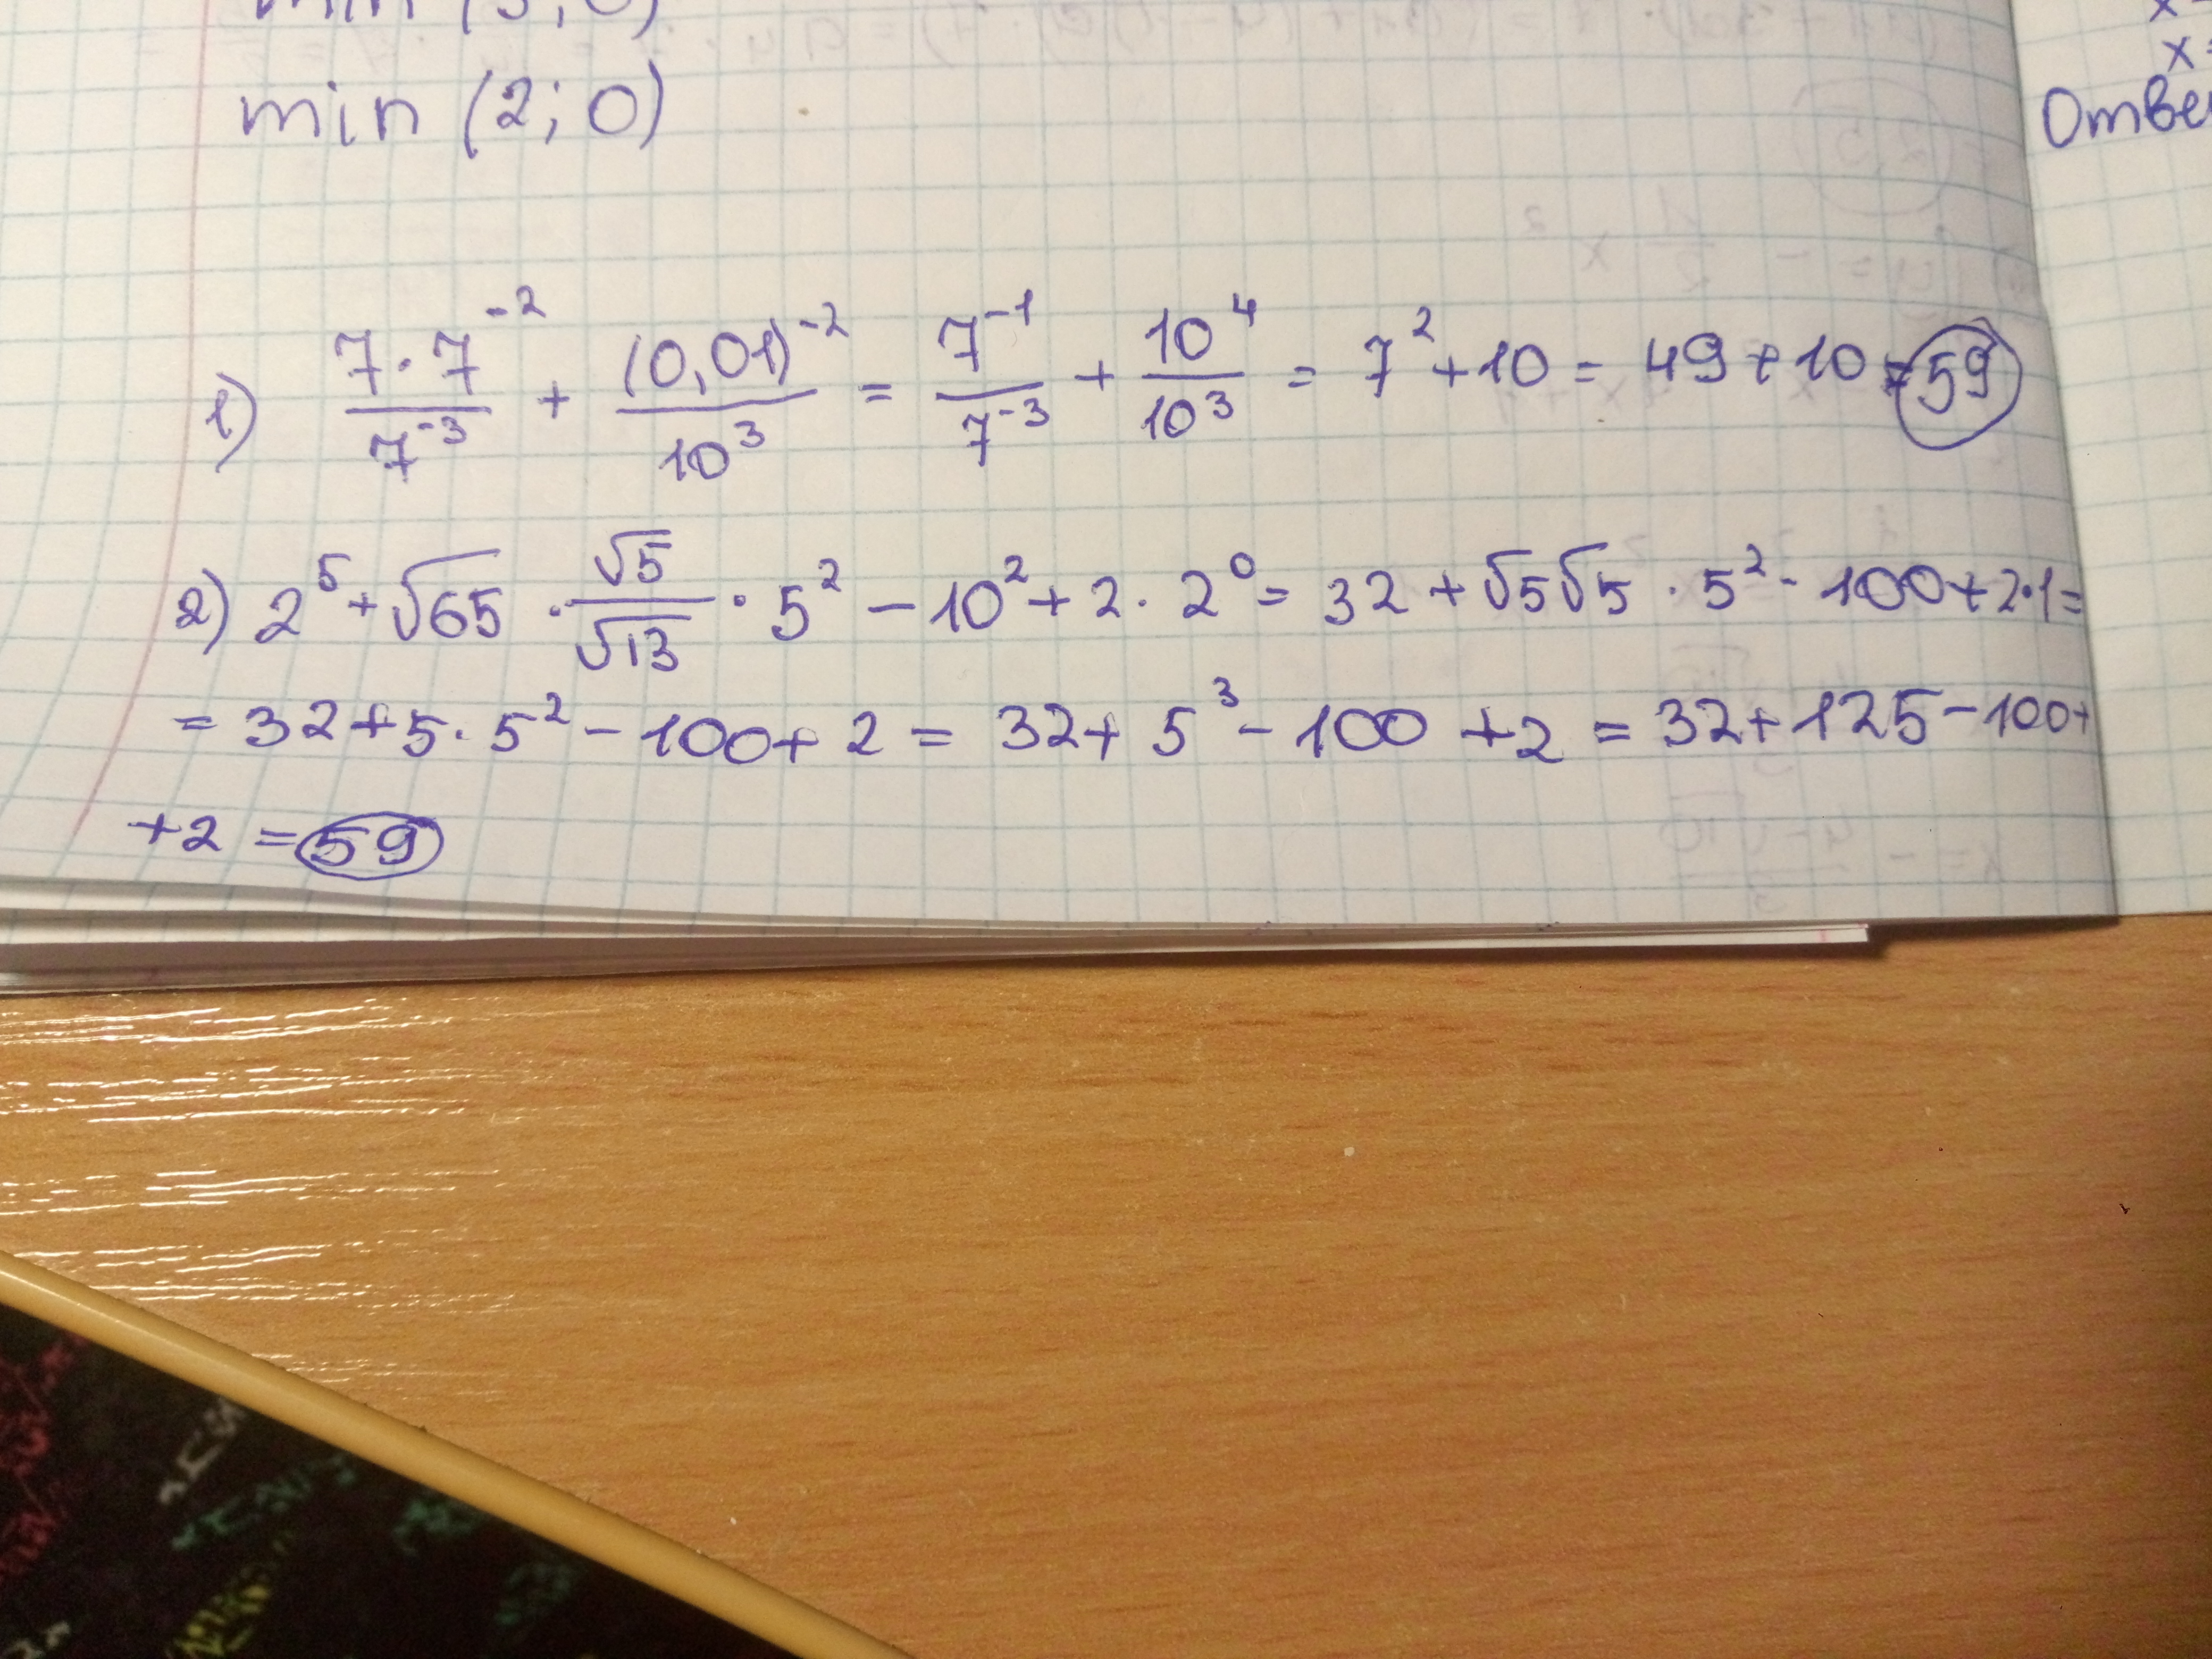 min (2; 0)
1) (7·7^-2)/(7^-3) + ((0,01)^-2)/(10^3) = (7^-1)/(7^-3) + (10^4)/(10^3) = 7^2 + 10 = 49 + 10 = 59
2) 2^5 + √65 · √5/√13 · 5^2 - 10^2 + 2 · 2^0 = 32 + √5√5 · 5^2 - 100 + 2·1 =
= 32 + 5 · 5^2 - 100 + 2 = 32 + 5^3 - 100 + 2 = 32 + 125 - 100 +
+ 2 = 59